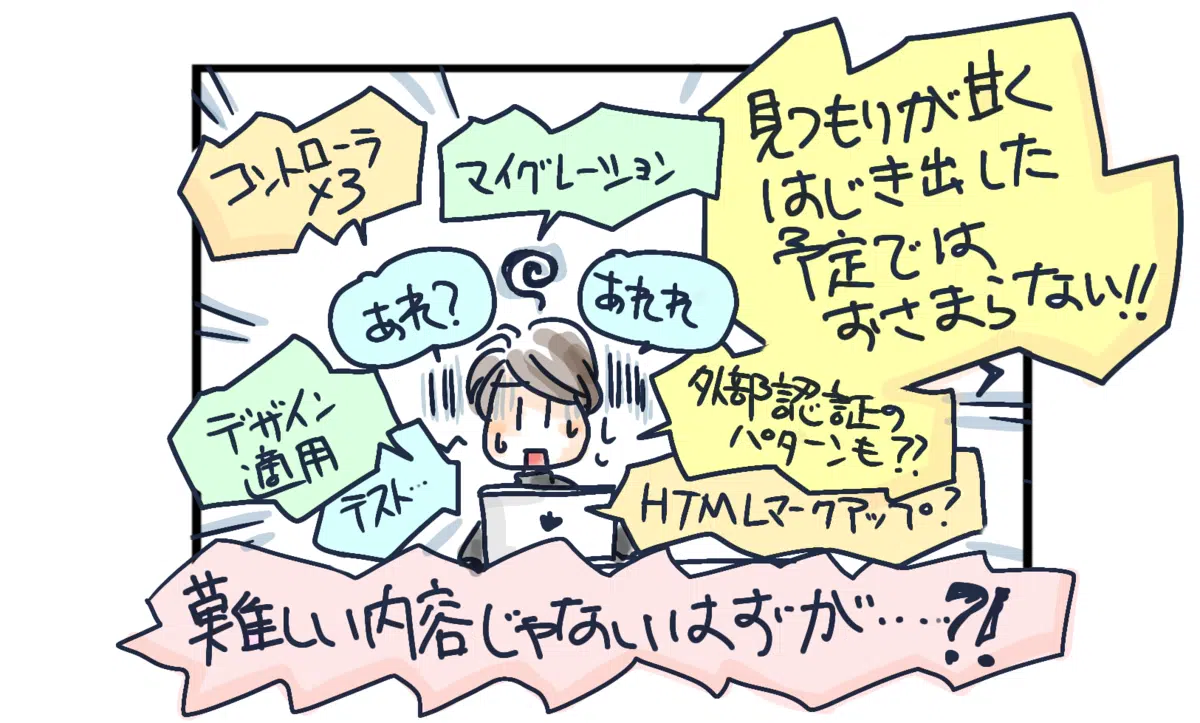 コントローラ
×3
マイグレーション
見つもりが甘く
はじき出した
予定では
おさまらない!!
あれ?
あれれ
デザイン
適用
テスト…
外部認証の
パターンも??
HTMLマークアップ?
難しい内容じゃないはずが……?!